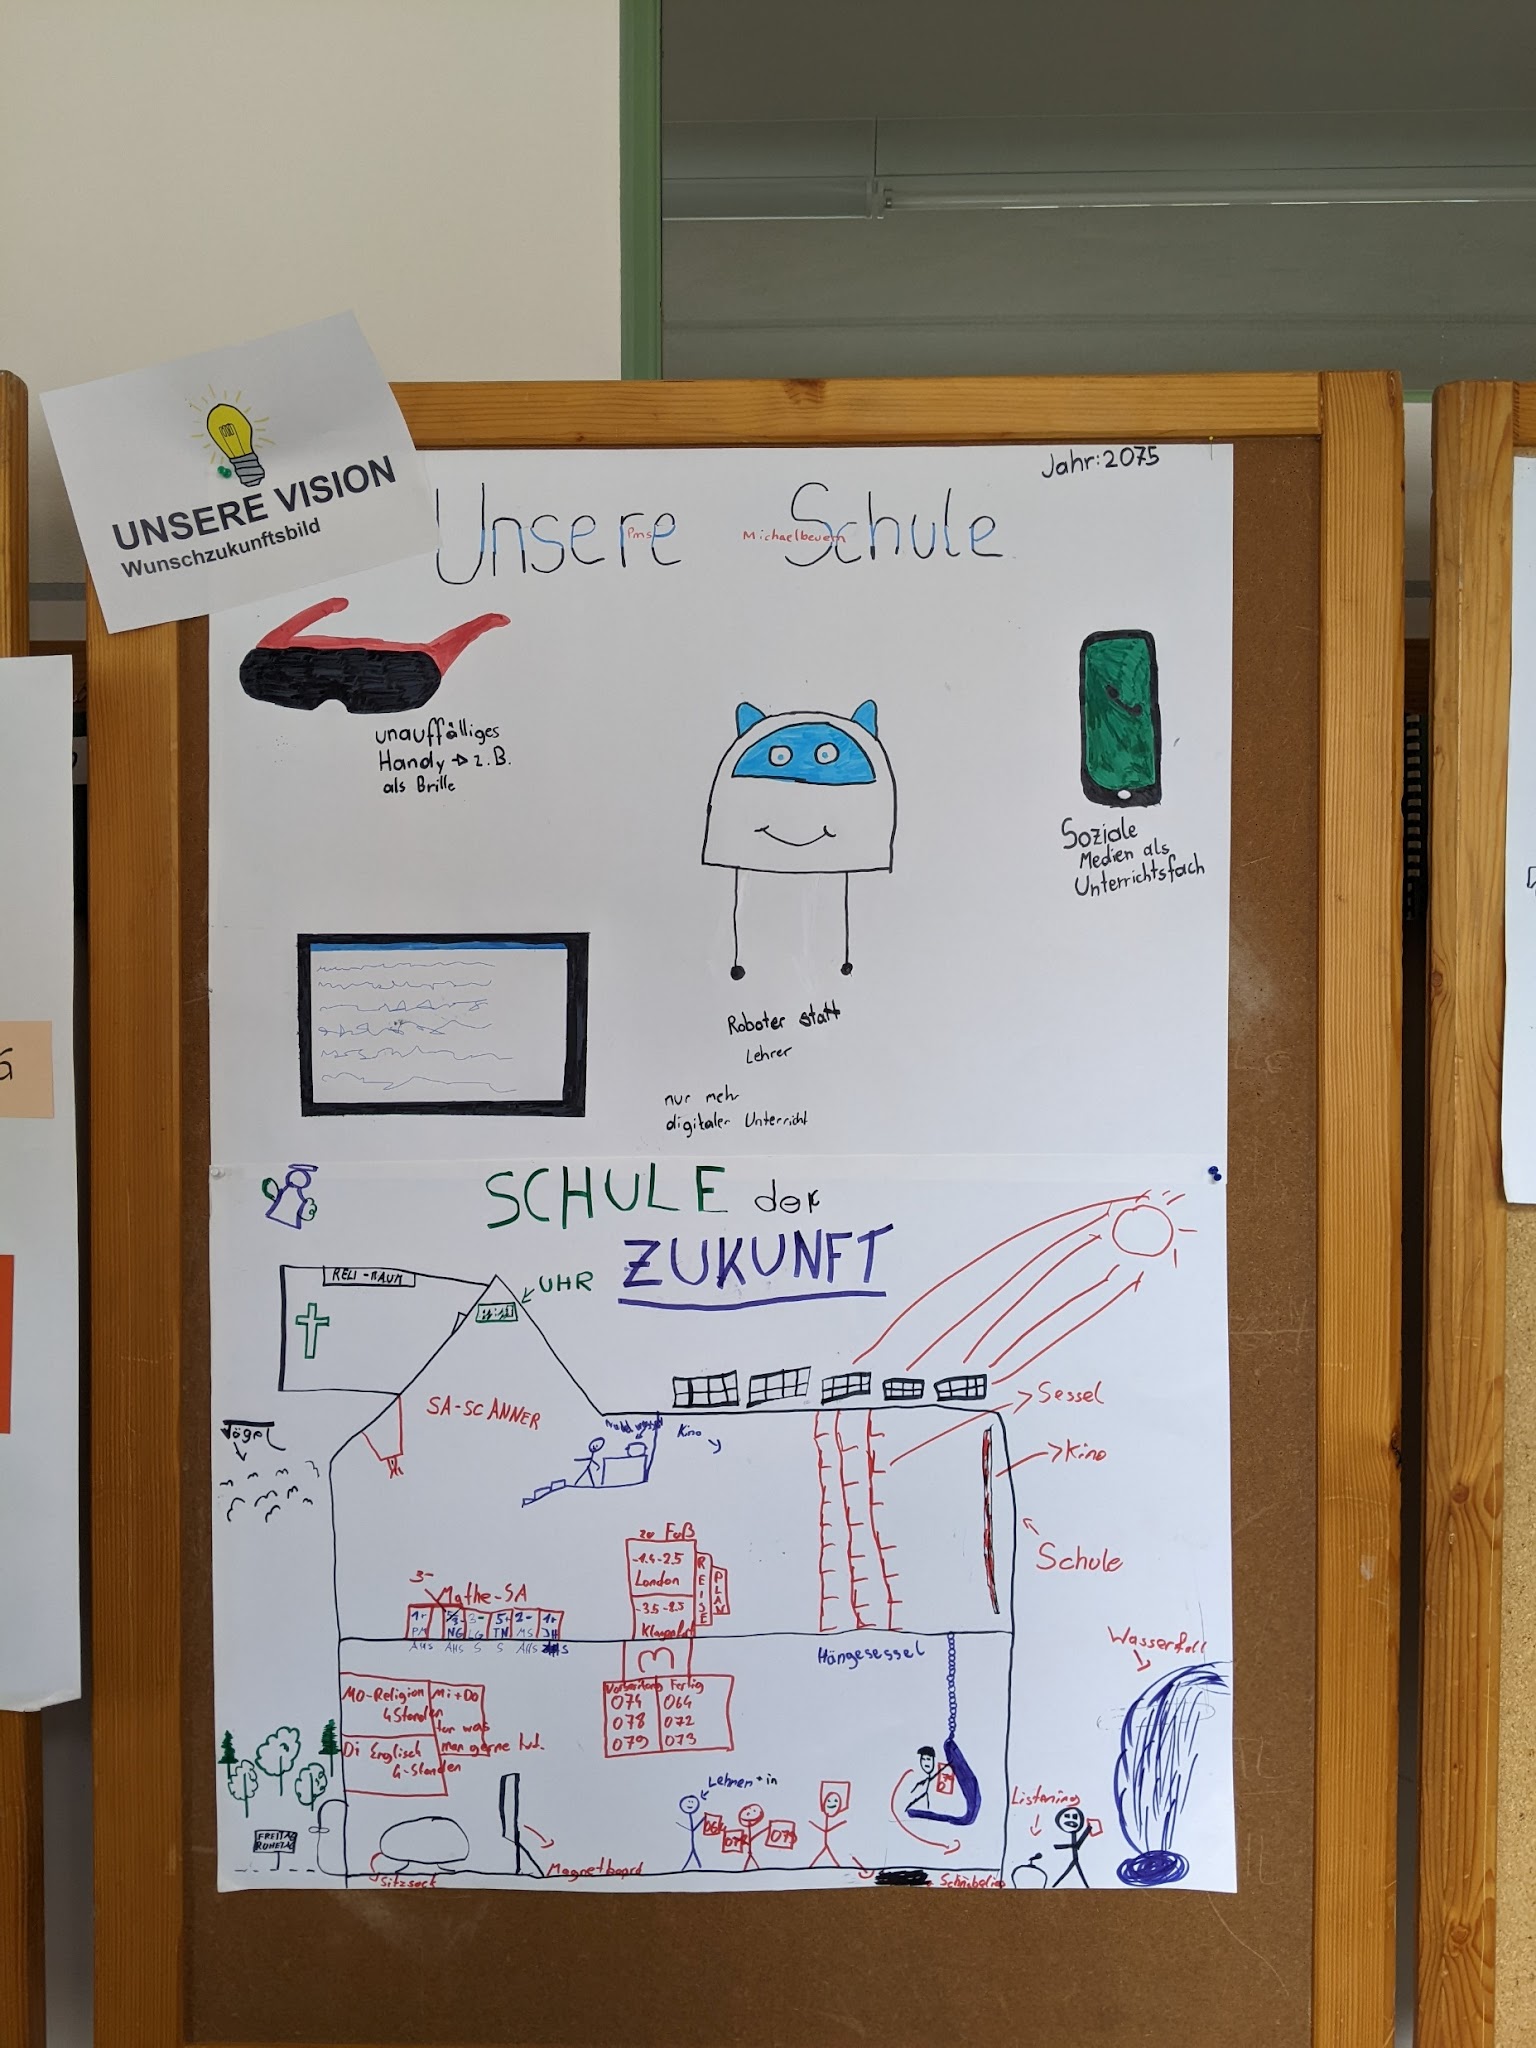 UNSERE VISION
Wunschzukunftsbild
Jahr:2075
Unsere Schule
Pms Michaelbeuern
unauffälliges
Handy → z.B.
als Brille
Soziale
Medien als
Unterrichtsfach
Roboter statt
Lehrer
nur mehr
digitaler Unterricht
SCHULE der
ZUKUNFT
RELI-RAUM
UHR
SA-SCANNER
Vögel
Kino
Sessel
Kino
Schule
zu Fuß
London
REISE
PLAN
3-
Mathe-SA
1+
PM
AHS
NG
AHS
3-
LG
S
5+
TN
S
2-
MS
AHS
1+
JH
Hängesessel
Wasserfall
MO-Religion
4 Stonden
Di Englisch
4-Stonden
Mi+Do
tor was
man gerne tud.
Vorbereitung Fertig
074 064
078 072
079 073
Lehrer*in
064
074
079
Listening
FREITAG
RUHETAG
Sitzsack
Magnetboard